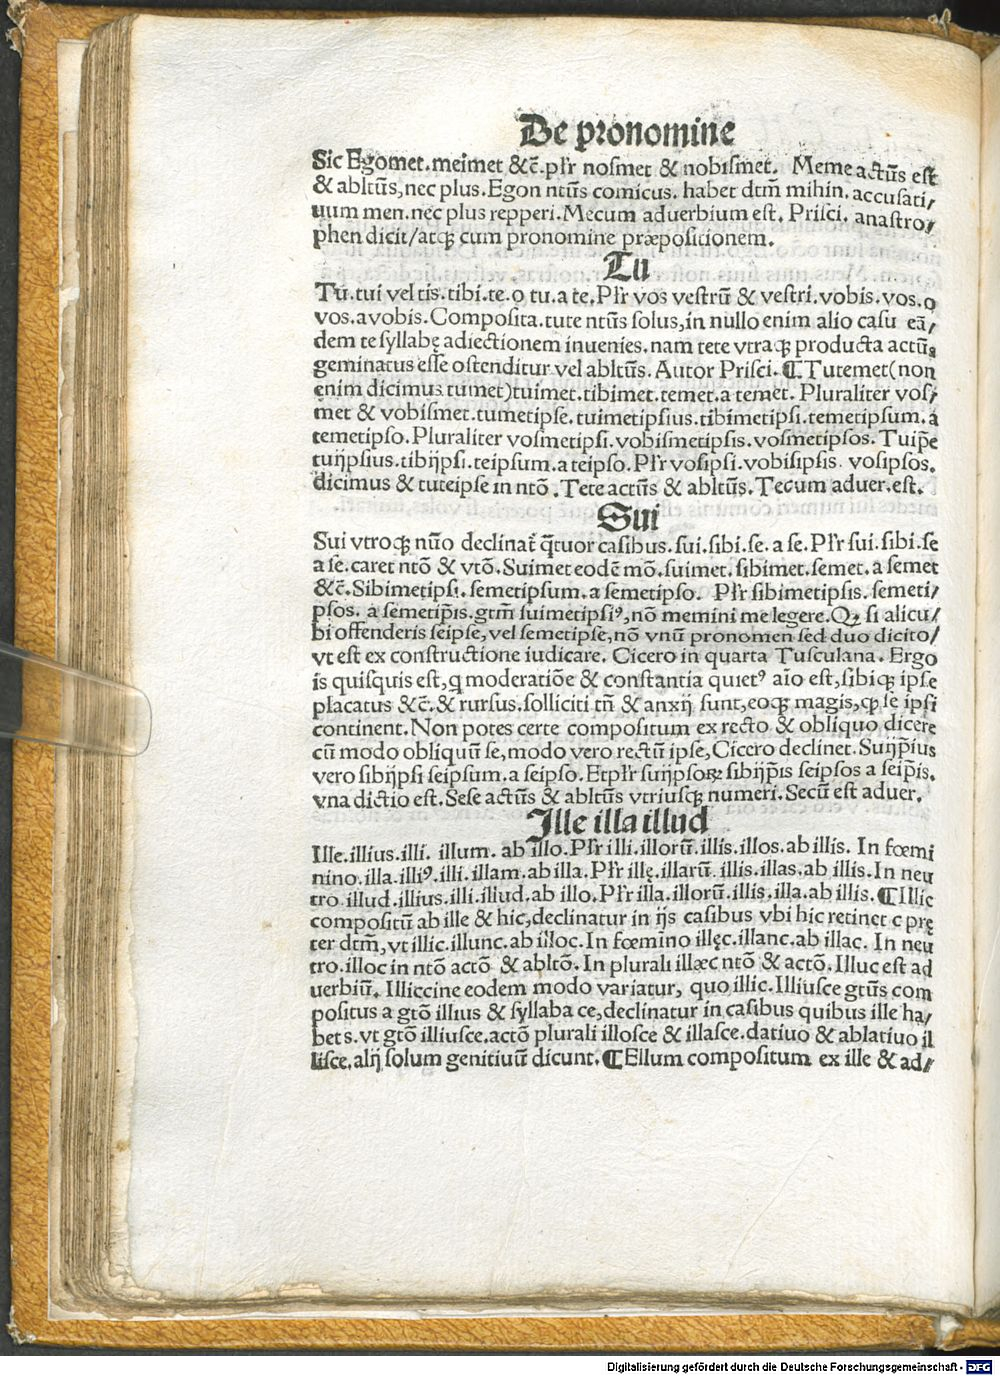 De pronomine
Sic Egomet.meimet &c̃.pl̃r nosmet & nobismet. Meme actũs est
& abltũs,nec plus.Egon ntũs comicus. habet dtm̃ mihin. accusati/
uum men.nec plus repperi.Mecum aduerbium est. Prisci. anastro/
phen dicit/atqꝫ cum pronomine præpositionem.
Tu
Tu.tui vel tis.tibi.te.o tu.a te.Pl̃r vos vestrũ & vestri.vobis.vos.o
vos.a vobis.Composita.tute ntũs solus,in nullo enim alio casu eã/
dem te syllabę adiectionem inuenies.nam tete vtraqꝫ producta actũs
geminatus esse ostenditur vel abltũs. Autor Prisci. ¶ Tutemet(non
enim dicimus tumet)tuimet.tibimet.temet.a temet. Pluraliter vos/
met & vobismet.tumetipse.tuimetipsius.tibimetipsi.temetipsum.a
temetipso.Pluraliter vosmetipsi.vobismetipsis.vosmetipsos. Tuip̃e
tuijpsius.tibijpsi.teipsum.a teipso.Pl̃r vosipsi.vobisipsis. vosipsos.
dicimus & tuteipse in ntõ.Tete actũs & abltũs.Tecum aduer.est.
Sui
Sui vtroqꝫ nũo declinat̃ q̃tuor casibus.sui.sibi.se.a se.Pl̃r sui.sibi.se
a se.caret ntõ & vtõ.Suimet eodẽ mõ.suimet.sibimet.semet.a semet
&c̃.Sibimetipsi.semetipsum.a semetipso. Pl̃r sibimetipsis.semeti/
psos. a semetip̃is.gtm̃ suimetipsiꝰ,nõ memini me legere.Qꝫ si alicu/
bi offenderis seipse,vel semetipse,nõ vnũ pronomen sed duo dicito/
vt est ex constructione iudicare. Cicero in quarta Tusculana. Ergo
is quisquis est,q moderatiõe & constantia quietꝰ aĩo est,sibiqꝫ ipse
placatus &c̃.& rursus.solliciti tñ & anxij sunt,eoqꝫ magis,qꝫ se ipsi
continent.Non potes certe compositum ex recto & obliquo dicere
cũ modo obliquũ se,modo vero rectũ ipse,Cicero declinet.Suijp̃ius
vero sibijpsi seipsum.a seipso.Et pl̃r suijpsoꝝ sibijp̃is seipsos a seip̃is.
vna dictio est.Sese actũs & abltũs vtriusqꝫ numeri.Secũ est aduer.
Ille illa illud
Ille.illius.illi. illum. ab illo.Pl̃r illi.illorũ.illis.illos.ab illis. In fœmi
nino.illa.illiꝰ.illi.illam.ab illa.Pl̃r illę.illarũ.illis.illas.ab illis.In neu
tro.illud.illius.illi.illud.ab illo.Pl̃r illa.illorũ.illis.illa.ab illis.¶Illic
compositũ ab ille & hic,declinatur in ijs casibus vbi hic retinet c prę
ter dtm̃,vt illic.illunc.ab illoc.In fœmino illęc.illanc.ab illac. In neu
tro.illoc in ntõ actõ & abltõ.In plurali illæc ntõ & actõ.Illuc est ad
uerbiũ. Illiccine eodem modo variatur, quo illic.Illiusce gtũs com
positus a gtõ illius & syllaba ce,declinatur in casibus quibus ille ha/
bet s.vt gtõ illiusce.actõ plurali illosce & illasce.datiuo & ablatiuo il
lisce.alij solum genitiuũ dicunt.¶Ellum compositum ex ille & ad/
Digitalisierung gefördert durch die Deutsche Forschungsgemeinschaft - DFG